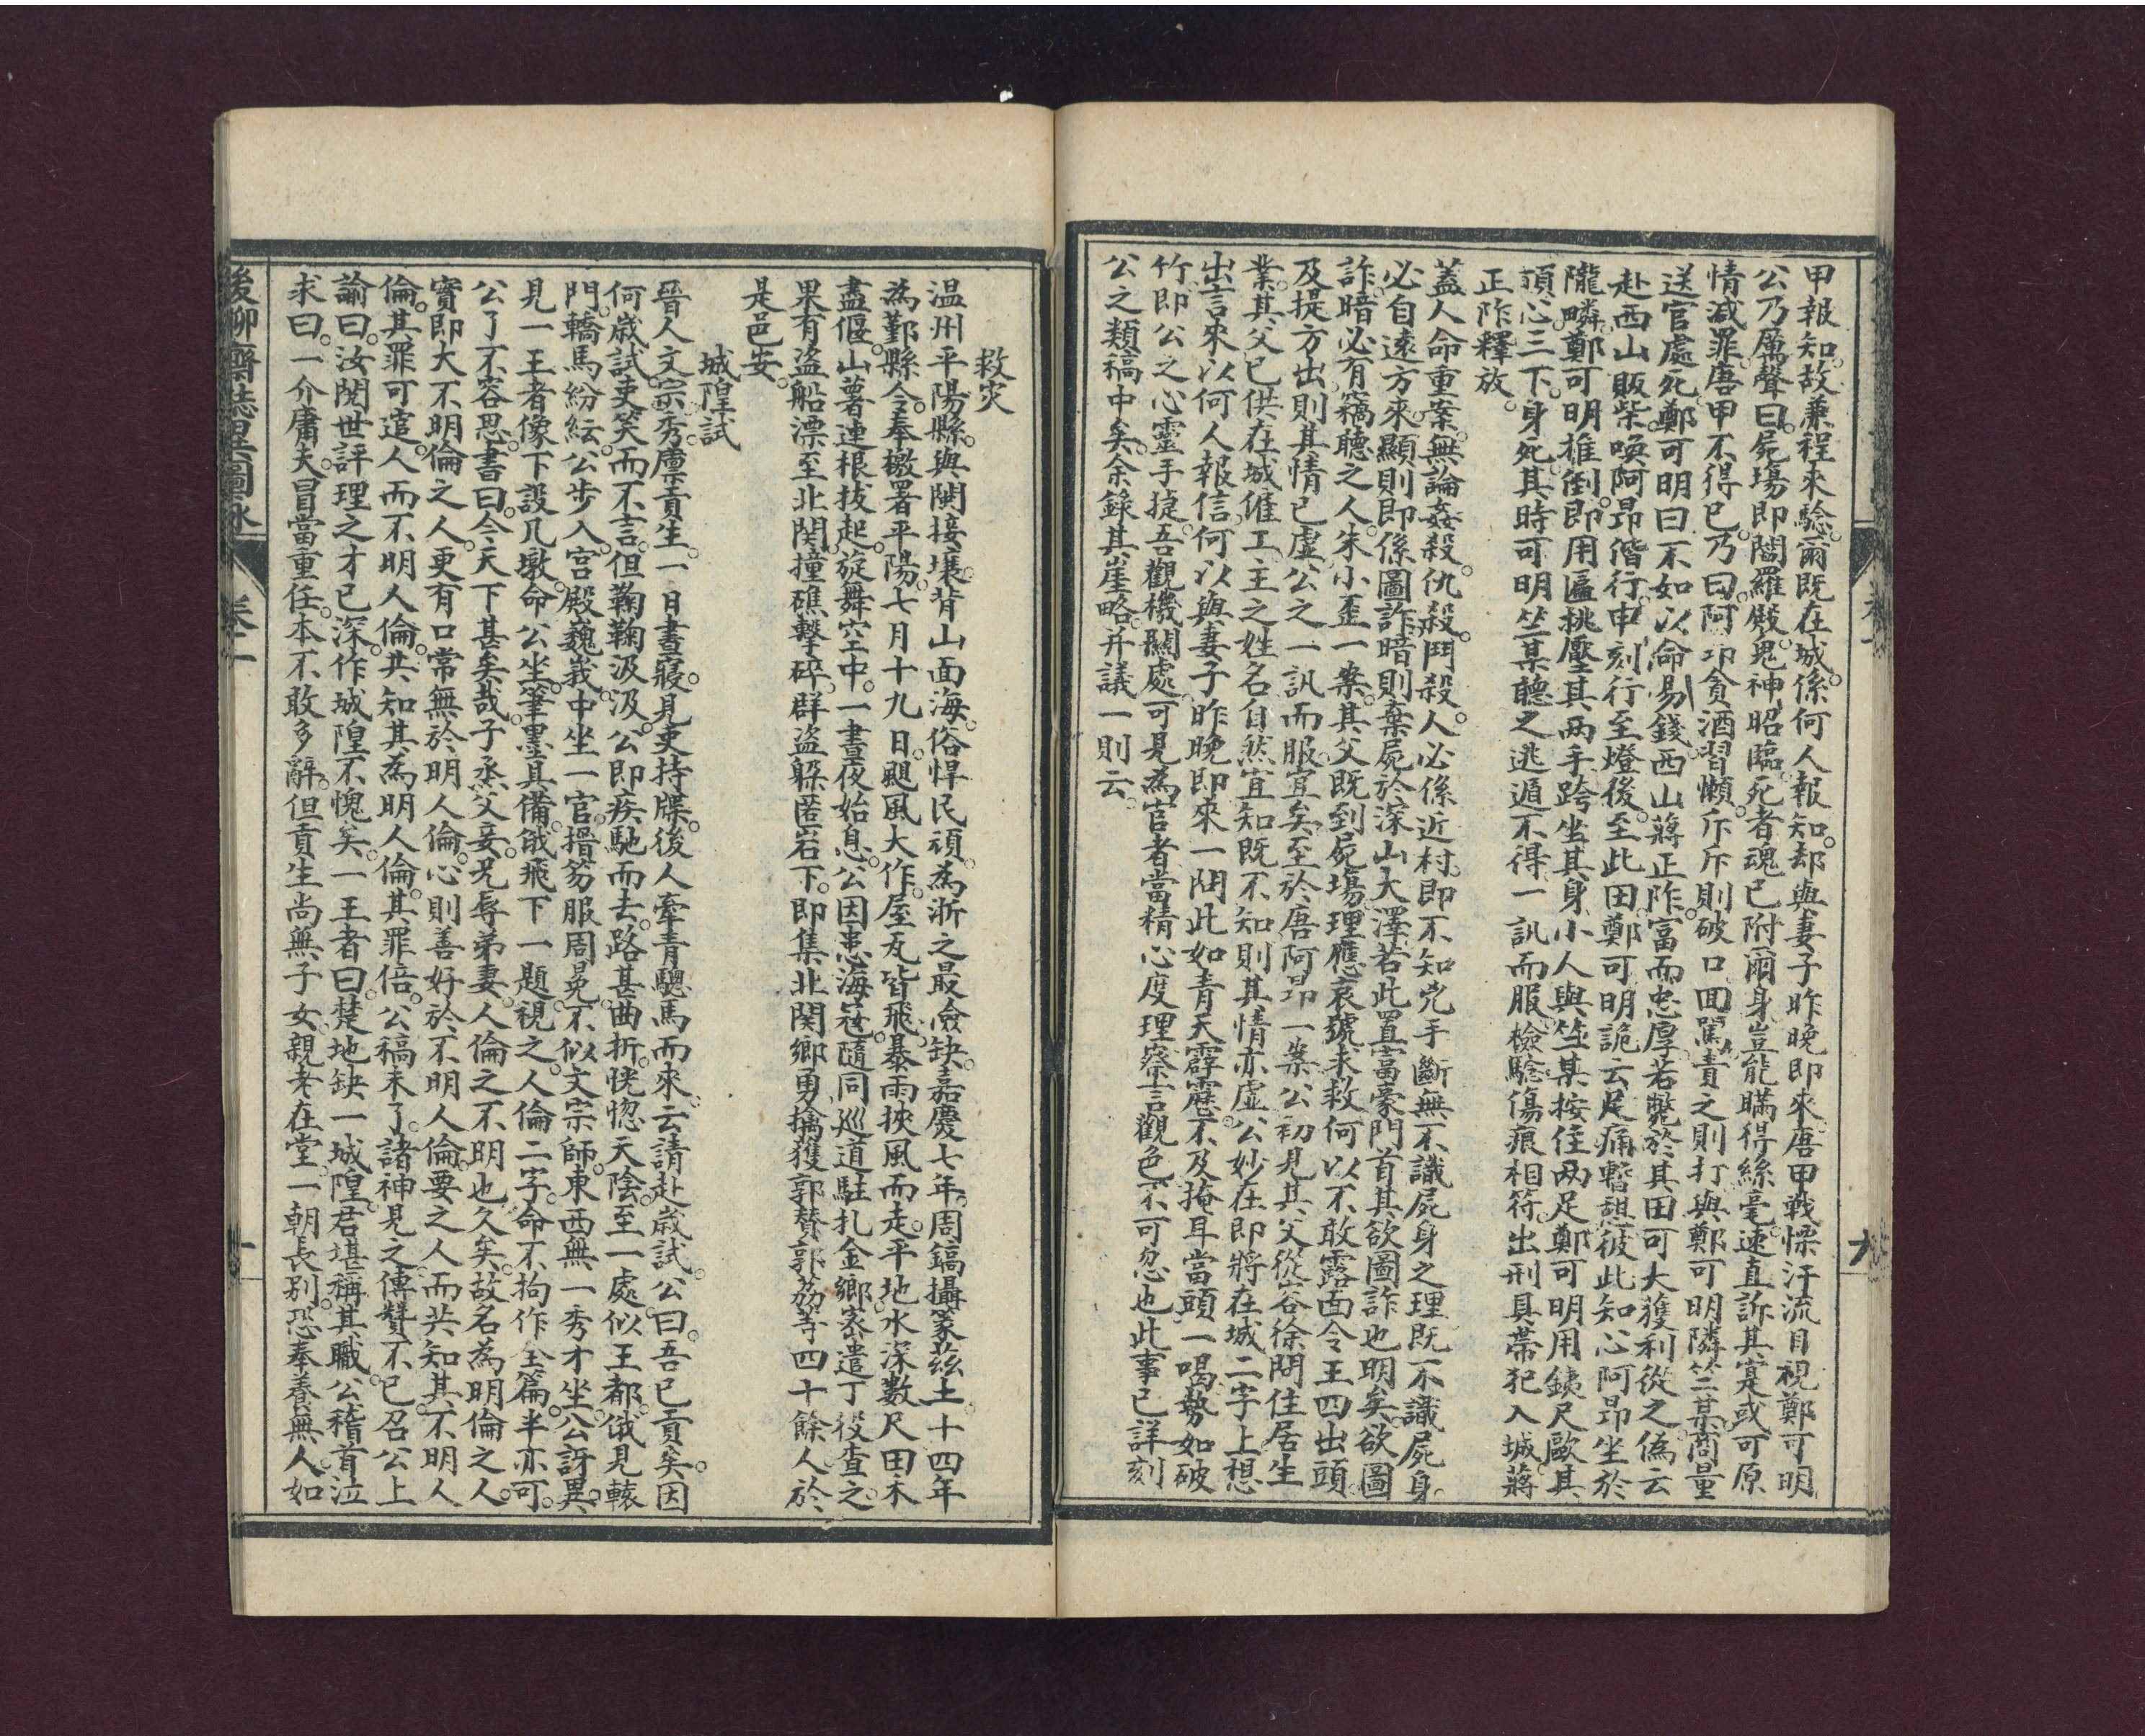 甲報知。故兼程來驗。爾既在城。係何人報知。却與妻子昨晚即來。唐甲戰慄汗流目視鄭可明
公乃厲聲曰。屍塲即閻羅殿。鬼神昭臨。死者魂已附爾身。豈能瞞得絲毫。速直訴其寔。或可原
情減罪。唐甲不得已。乃曰。阿卬貪酒習懶。斥斥則破口回罵。責之則打。與鄭可明隣竺某。商量
送官處死。鄭可明曰。不如以命易錢。西山蔣正阼。富而忠厚。若斃於其田。可大獲利。從之。偽云
赴西山販柴。喚阿昂偕行。申刻行至燈後。至此田。鄭可明詭云足痛。暫憩。彼此知心。阿昂坐於
隴畔。鄭可明推倒。即用匾挑壓其兩手。跨坐其身。小人與竺某按住兩足。鄭可明用銕尺毆其
頂心三下。身死。其時可明竺某聽之逃遁不得。一訊而服。檢驗傷痕相符。出刑具帶犯入城。蔣
正阼釋放。
蓋人命重案。無論姦殺。仇殺。鬥殺人。必係近村。即不知兇手。斷無不識屍身之理。既不識屍身。
必自遠方來。顯則即係圖詐。暗則棄屍於深山大澤。若此置富豪門首。其欲圖詐也明矣。欲圖
詐。暗必有竊聽之人。朱小歪一案。其父既到屍塲。理應哀號求救。何以不敢露面。令王四出頭。
及提方出。則其情已虛。公之一訊而服。宜矣。至於唐阿卬一案。公初見其父。從容徐問住居生
業。其父已供在城傭工。王之姓名。自然宜知。既不知。則其情亦虛。公妙在即將在城二字上。想
出言來。以何人報信。何以與妻子昨晚即來一問。此如青天霹靂。不及掩耳。當頭一喝。勢如破
竹。即公之心靈手捷。吾觀機關處。可見為官者。當精心度理。察言觀色。不可忽也。此事已詳刻
公之類稿中矣。余錄其崖略。并議一則云。
救災
温州平陽縣。與閩接壤。背山面海。俗悍民頑。為浙之最儉缺。嘉慶七年。周鎬攝篆茲土。十四年
為鄞縣令。奉檄署平陽。七月十九日。颶風大作。屋瓦皆飛。暴雨挾風而走。平地水深數尺。田禾
盡偃。山薯連根拔起。旋舞空中。一晝夜始息。公因患海寇。隨同巡道駐扎金鄉。密遣丁役查之。
果有盗船漂至北関。撞礁擊碎。群盗躱匿岩下。即集北関鄉勇。擒獲郭賛郭荔等四十餘人。於
是邑安。
城隍試
晉人文宗秀。廩貢生。一日晝寢。見吏持牒。後人牽青驄馬而來。云請赴歲試。公曰。吾已貢矣。因
何歲試。吏笑而不言。但鞠鞠汲汲。公即疾馳而去。路甚曲折。恍惚天陰。至一處。似王都。俄見轅
門。轎馬紛紜。公步入。宮殿巍峩。中坐一官。搢笏服周冕。不似文宗師。東西無一秀才坐。公訝異。
見一王者像。下設几墩。命公坐。筆墨具備。俄飛下一題。視之。人倫二字。命不拘作全篇。半亦可。
公了不容思。書曰。今天下甚矣哉。子烝父妾。兄辱弟妻。人倫之不明也久矣。故名為明倫之人。
實即大不明倫之人。更有口常無於明人倫。心則善好於不明人倫。要之人而共知其不明人
倫。其罪可逭。人而不明人倫。共知其為明人倫。其罪倍。公稿未了。諸神見之。傳贊不已。召公上
諭曰。汝閱世評理之才已深。作城隍不愧矣。一王者曰。楚地缺一城隍。君堪稱其職。公稽首泣
求曰。一介庸夫。冒當重任。本不敢多辭。但貢生尚無子女。親老在堂。一朝長別。恐奉養無人。如
後聊齋志異圖詠
卷二